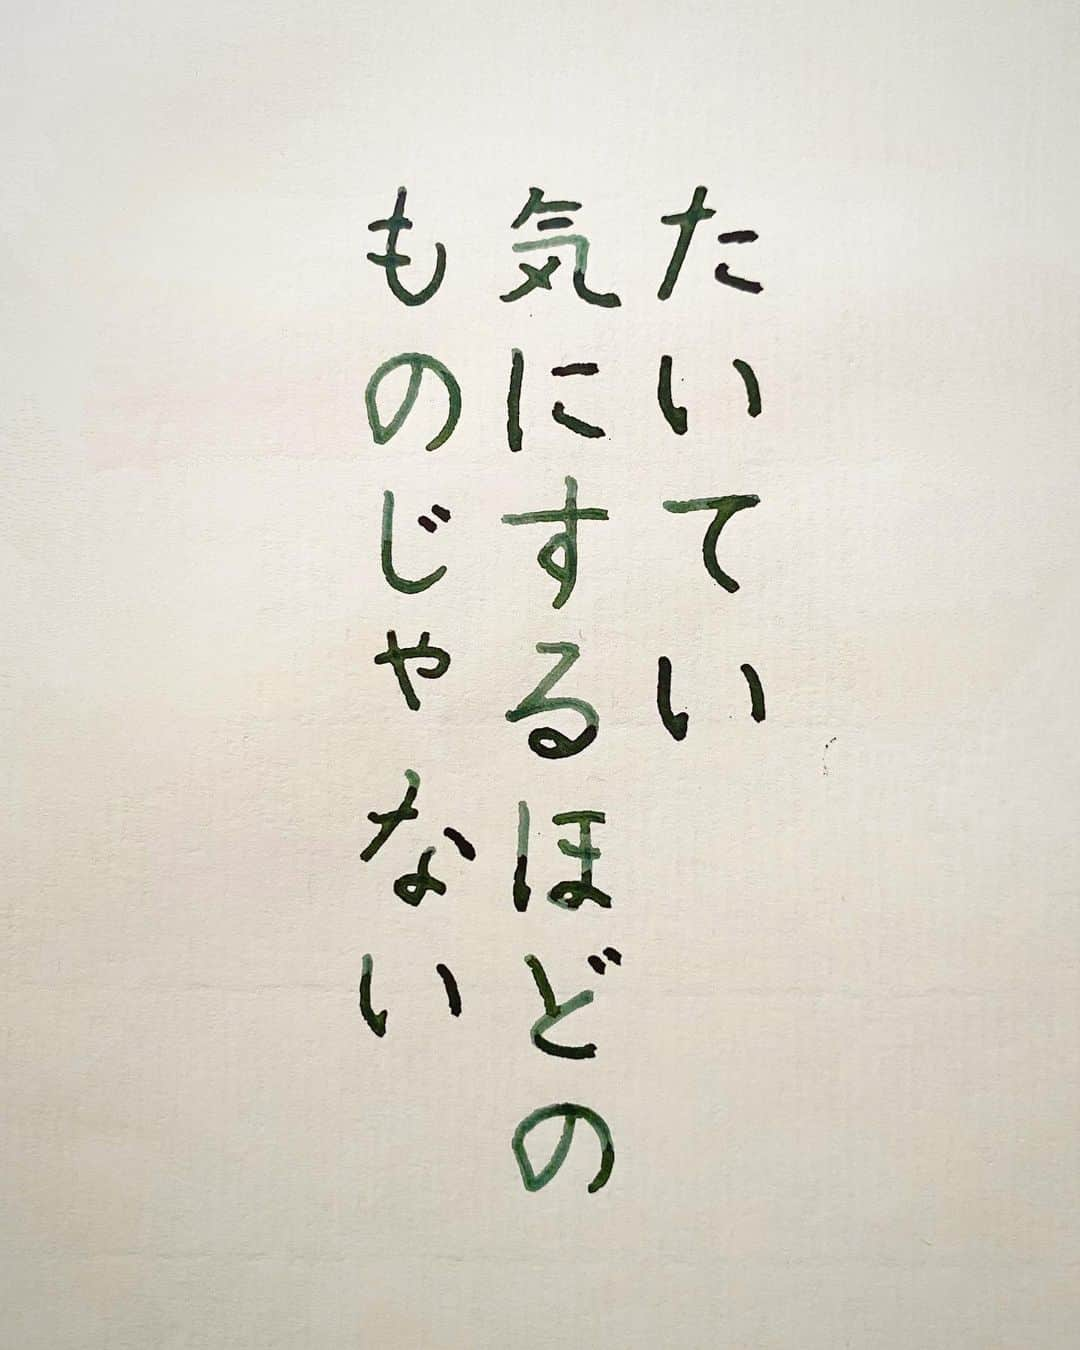 たいてい
気にするほどの
ものじゃない